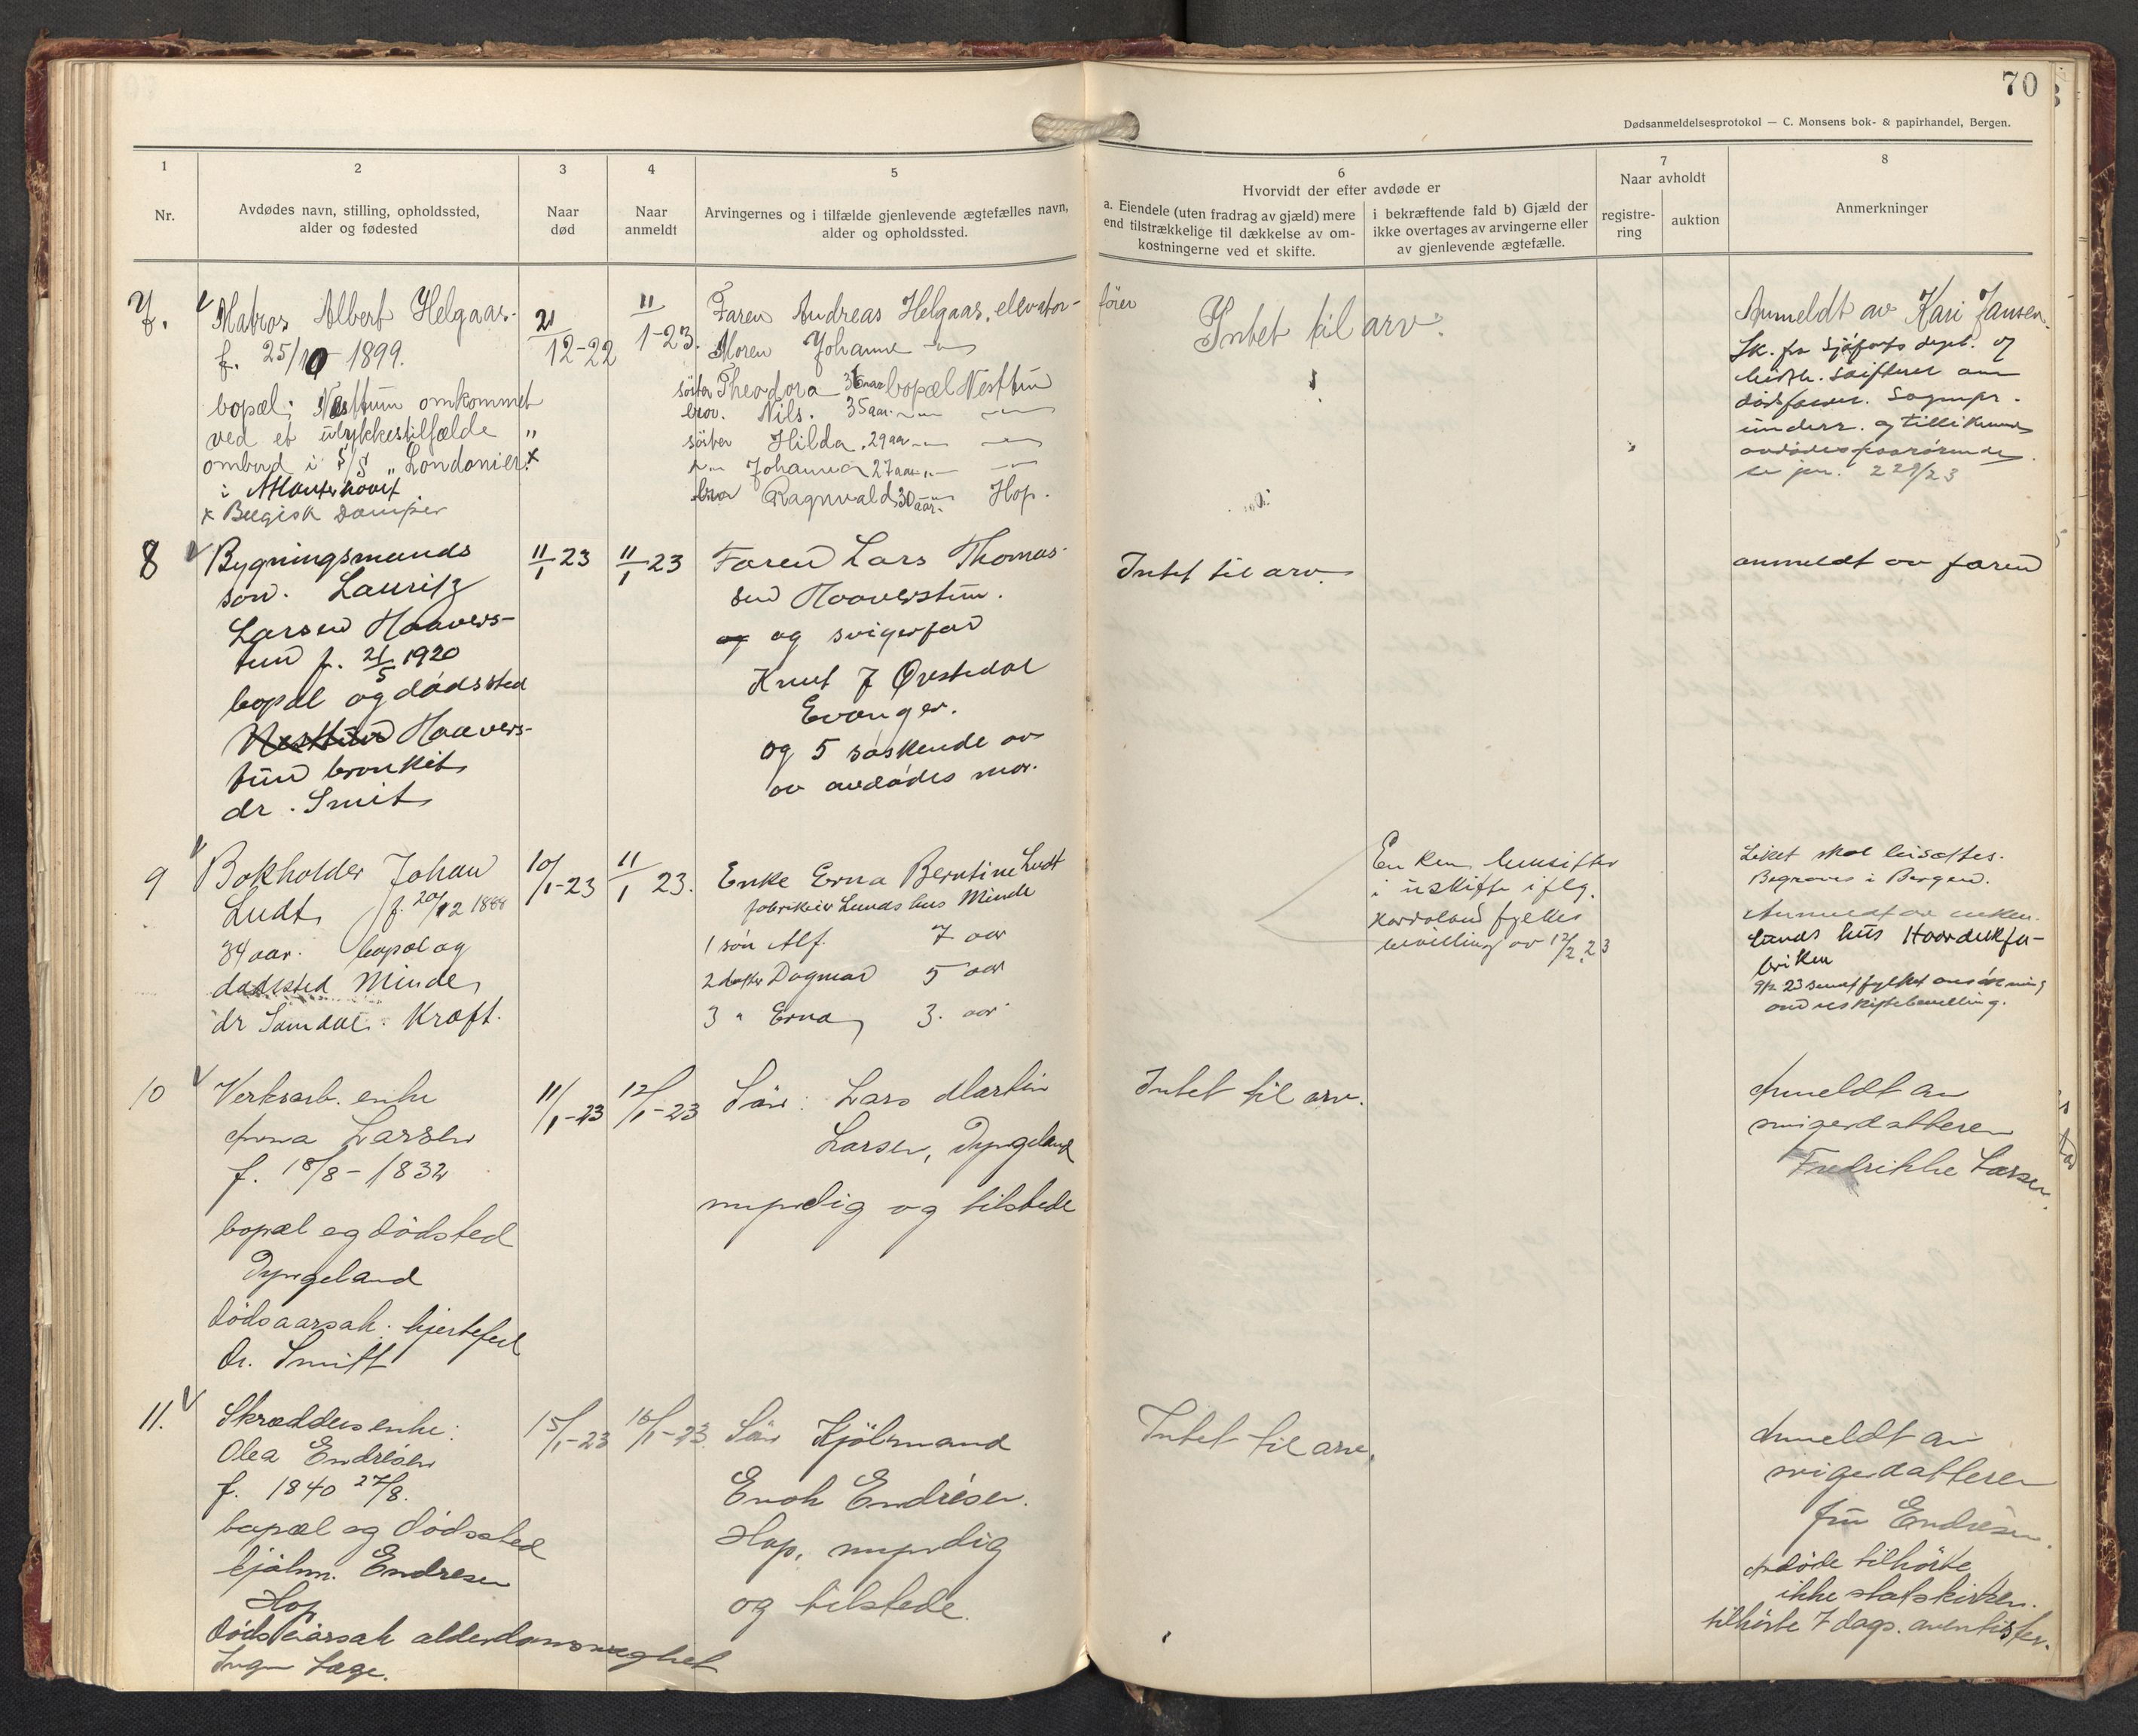 70
Dødsanmeldelsesprotokol — C. Monsens bok- & papirhandel, Bergen.
1
Nr.
2
Avdødes navn, stilling, opholdssted,
alder og fødested
3
Naar
død
4
Naar
anmeldt
5
Arvingernes og i tilfælde gjenlevende ægtefælles navn,
alder og opholdssted.
6
Hvorvidt der efter avdøde er
a. Eiendele (uten fradrag av gjæld) mere
end tilstrækkelige til dækkelse av om-
kostningerne ved et skifte.
i bekræftende fald b) Gjæld der
ikke overtages av arvingerne eller
av gjenlevende ægtefælle.
7
Naar avholdt
registre-
ring
auktion
8
Anmerkninger
7.
Matros Albert Helgaas.
f. 25/10 1899.
bopæl: Nesttun omkommet
ved et ulykkestilfælde
ombord i S/S "Londonier" x
i Atlanterhavet
x Belgisk Damper
21/12-22
11/1-23.
Faren Andreas Helgaas, elevator-
fører
Moren Johanne
søster Theodora 36 aar bopæl Nesttun
bror. Nils. 35 aar
søster Hilda, 29 aar
Johanna 27 aar
bror Ragnvald 30 aar Hop.
Intet til arv.
Anmeldt av Kari Jansen.
Sk. fra Sjøfarts dept. og
dødsfaldet. Sognepr.
underr. og tillikemed
avdødes paarørende
se jnr. 229/23
8
Bygningsmands
søn. Lauritz
Larsen Haavers-
tun f. 21/5 1920
bopæl og dødssted
Nesttun Haavers-
tun bronkit
dr. Smit
11/1 23
11/1 23
Faren Lars Thomas-
sen Haaverstun.
og og svigerfar
Knut J Øvstedal
Evanger.
og 5 søskende av
av avdødes mor.
Intet til arv.
anmeldt av faren
9
Bokholder Johan
Ludt, f. 20/12 1888
34 aar. bopæl og
dødssted Minde,
dr Samdal. Kræft.
10/1-23
11/1 23.
Enke Erna Berntine Ludt
fabrikeier Lunds hus Minde
1 søn Alf. 7 aar
2 datter Dagmar 5 aar
3 " Erna, 3. aar
Enken hensitter
i uskifte iflg.
Hordaland fylkes
bevilling av 12/2 23
Liket skal bisættes.
Begraves i Bergen.
Anmeldt av enken.
Lunds hus
briken
9/2 23 sendt fylket ansøkning
om uskiftebevilling.
10
Verksarb. enke
Anna Larsen
f. 18/8-1832
bopæl og dødsted
Dyngeland
Dødsaarsak. hjertefeil
Dr. Smitt
11/1-23
12/1-23
Søn: Lars Martin
Larsen, Dyngeland
myndig og tilstede
Intet til arv.
Anmeldt av
svigerdatteren
Fredrikke Larsen.
11.
Skrædders enke:
Olea Endresen
f. 1840 27/8.
bopæl og dødssted
kjøbm. Endresen
Hop
Dødsaarsak alderdomssvaghet
Ingen læge.
15/1-23
16/1-23
Søn Kjøbmand
Enok Endresen.
Hop, myndig
og tilstede.
Intet til arv.
Anmeldt av
svigerdatteren
fru Endresen.
Avdøde tilhørte
ikke statskirken.
tilhørte 7 dags. aventister.